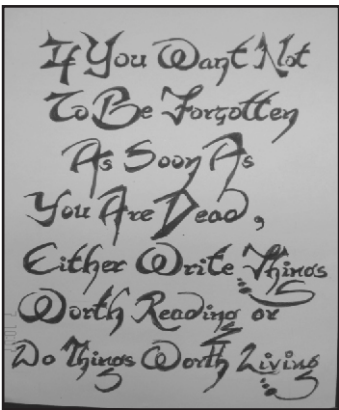 If You Want Not
To Be Forgotten
As Soon As
You Are Dead,
Either Write Things
Worth Reading or
Do Things Worth Living